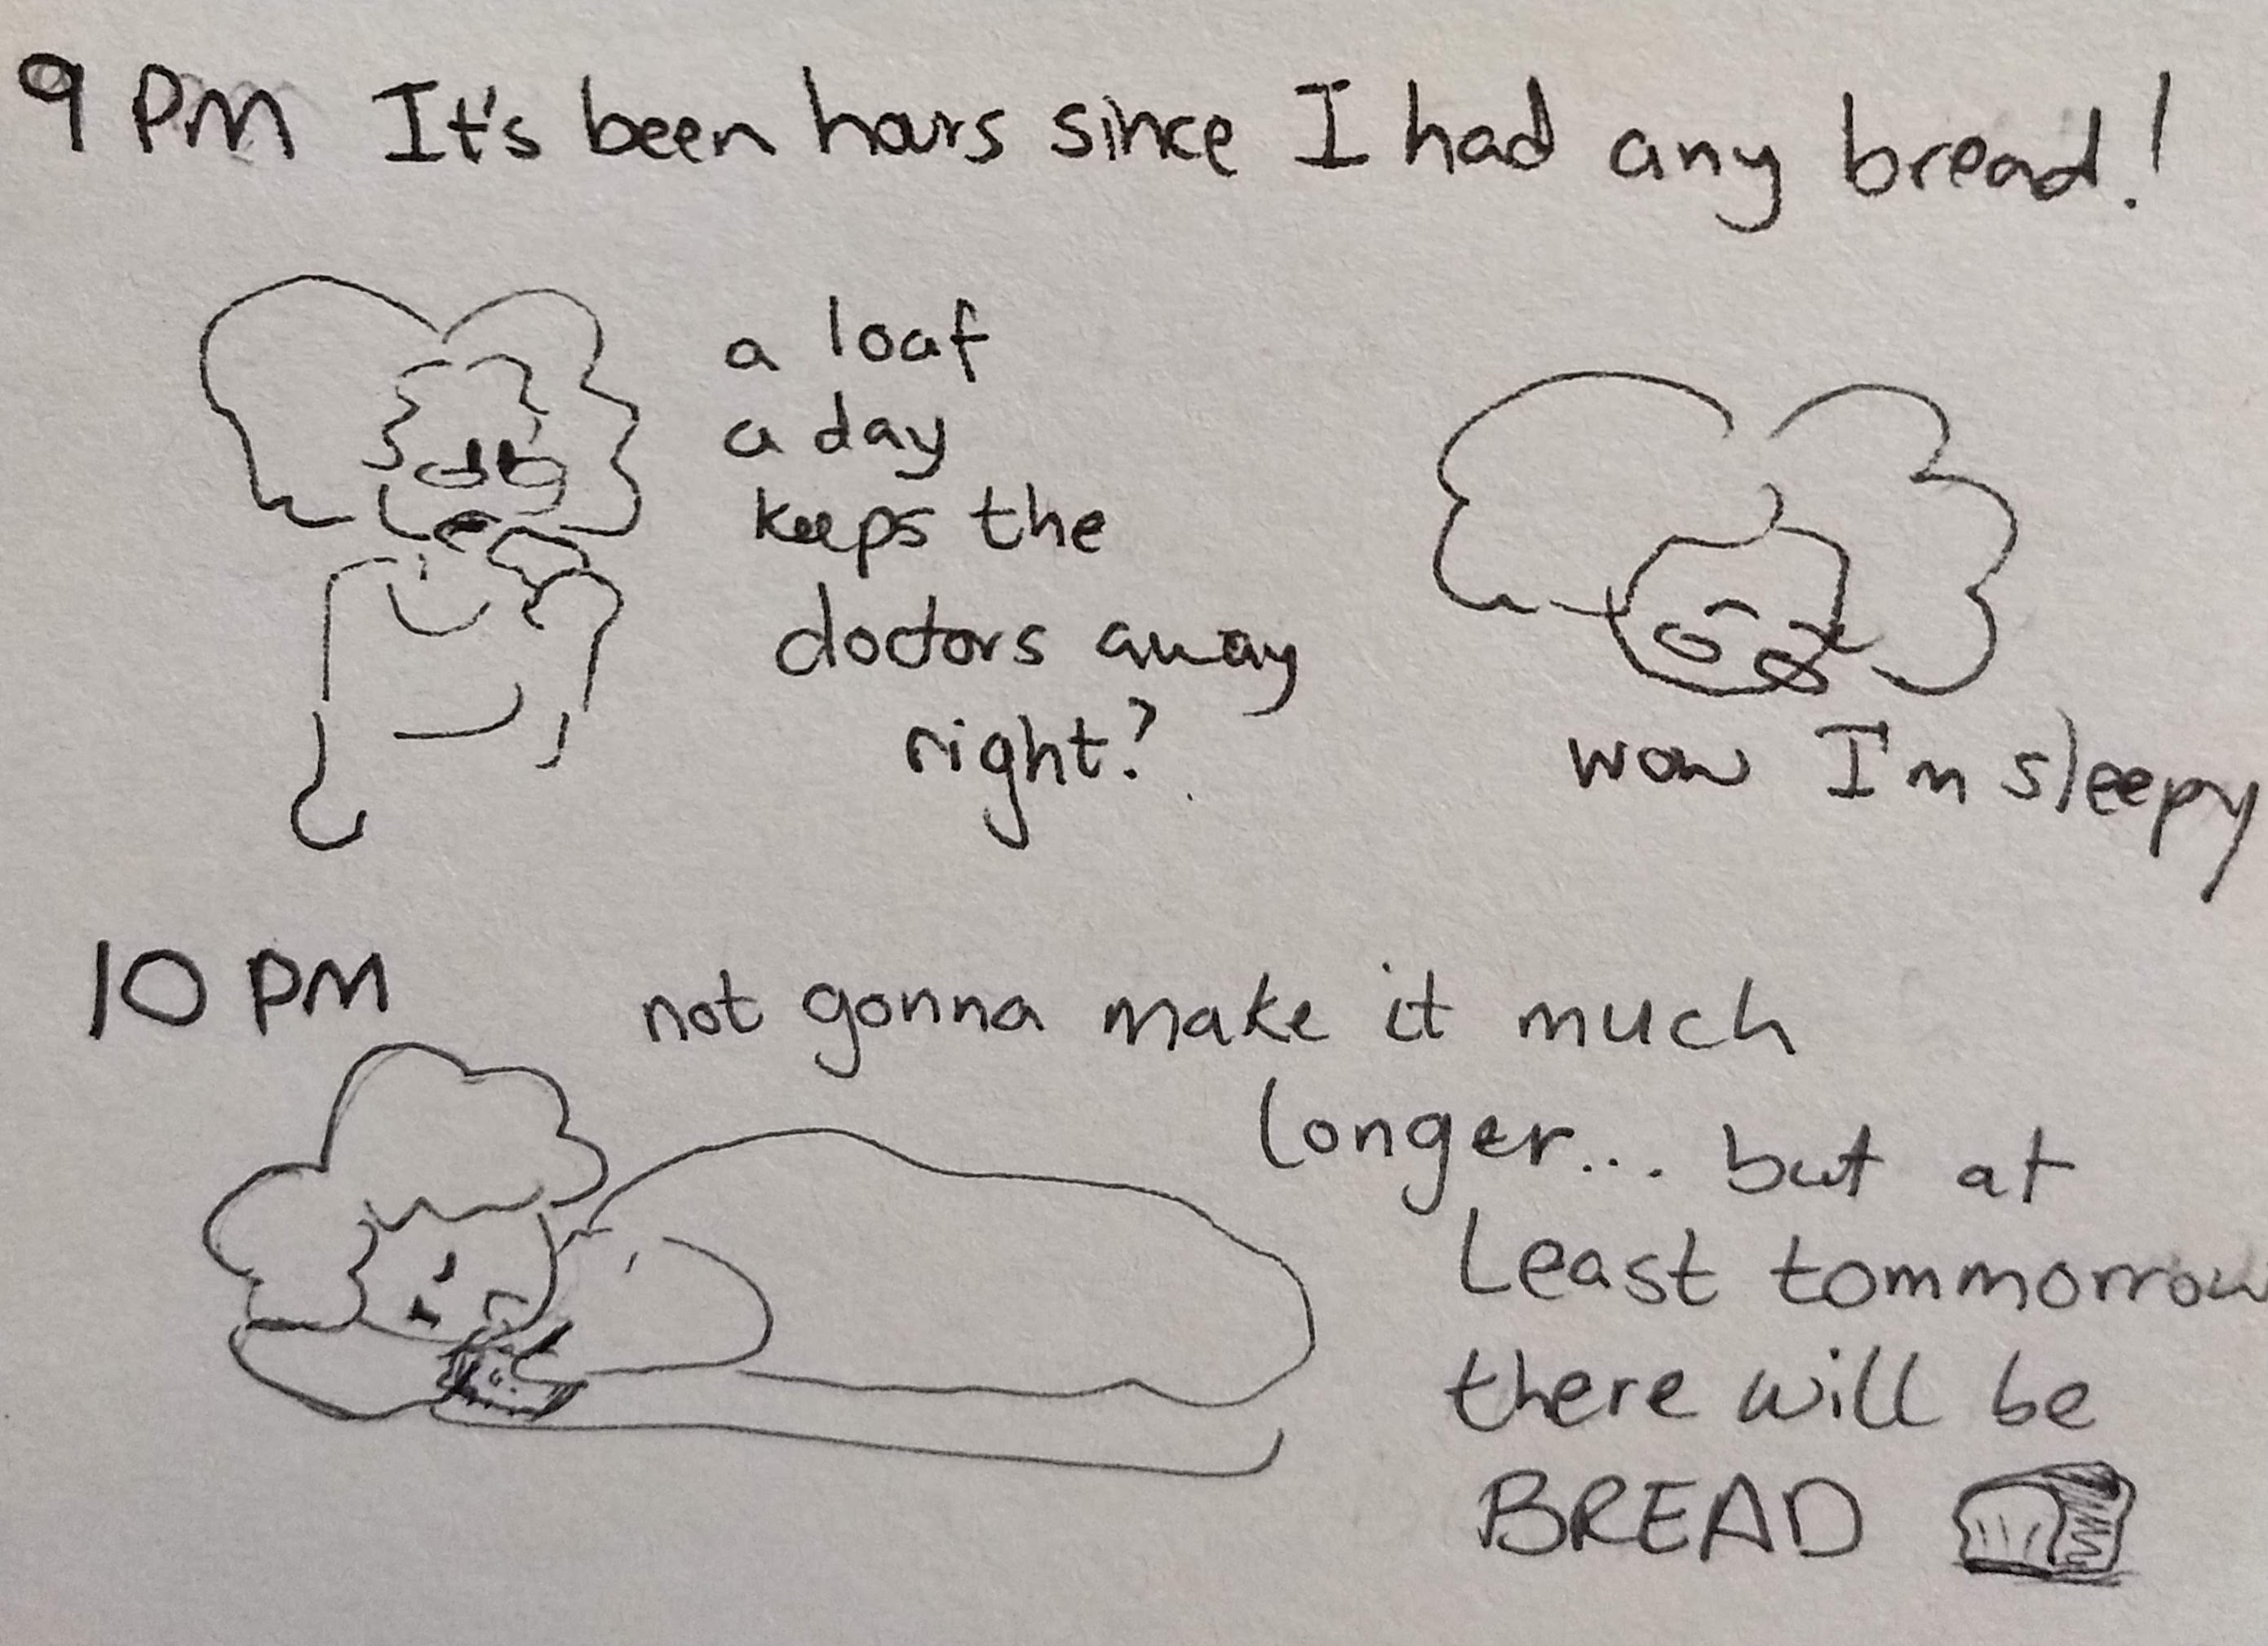 9 PM It's been hours since I had any bread!
a loaf
a day
keeps the
doctors away
right?
wow I'm sleepy
10 PM
not gonna make it much
longer... but at
Least tommorrow
there will be
BREAD